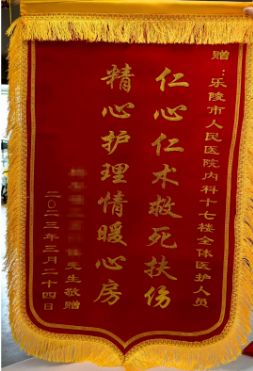 赠：乐陵市人民医院内科十七楼全体医护人员
仁心仁术救死扶伤
精心护理情暖心房
先生敬赠
二〇二三年三月二十四日